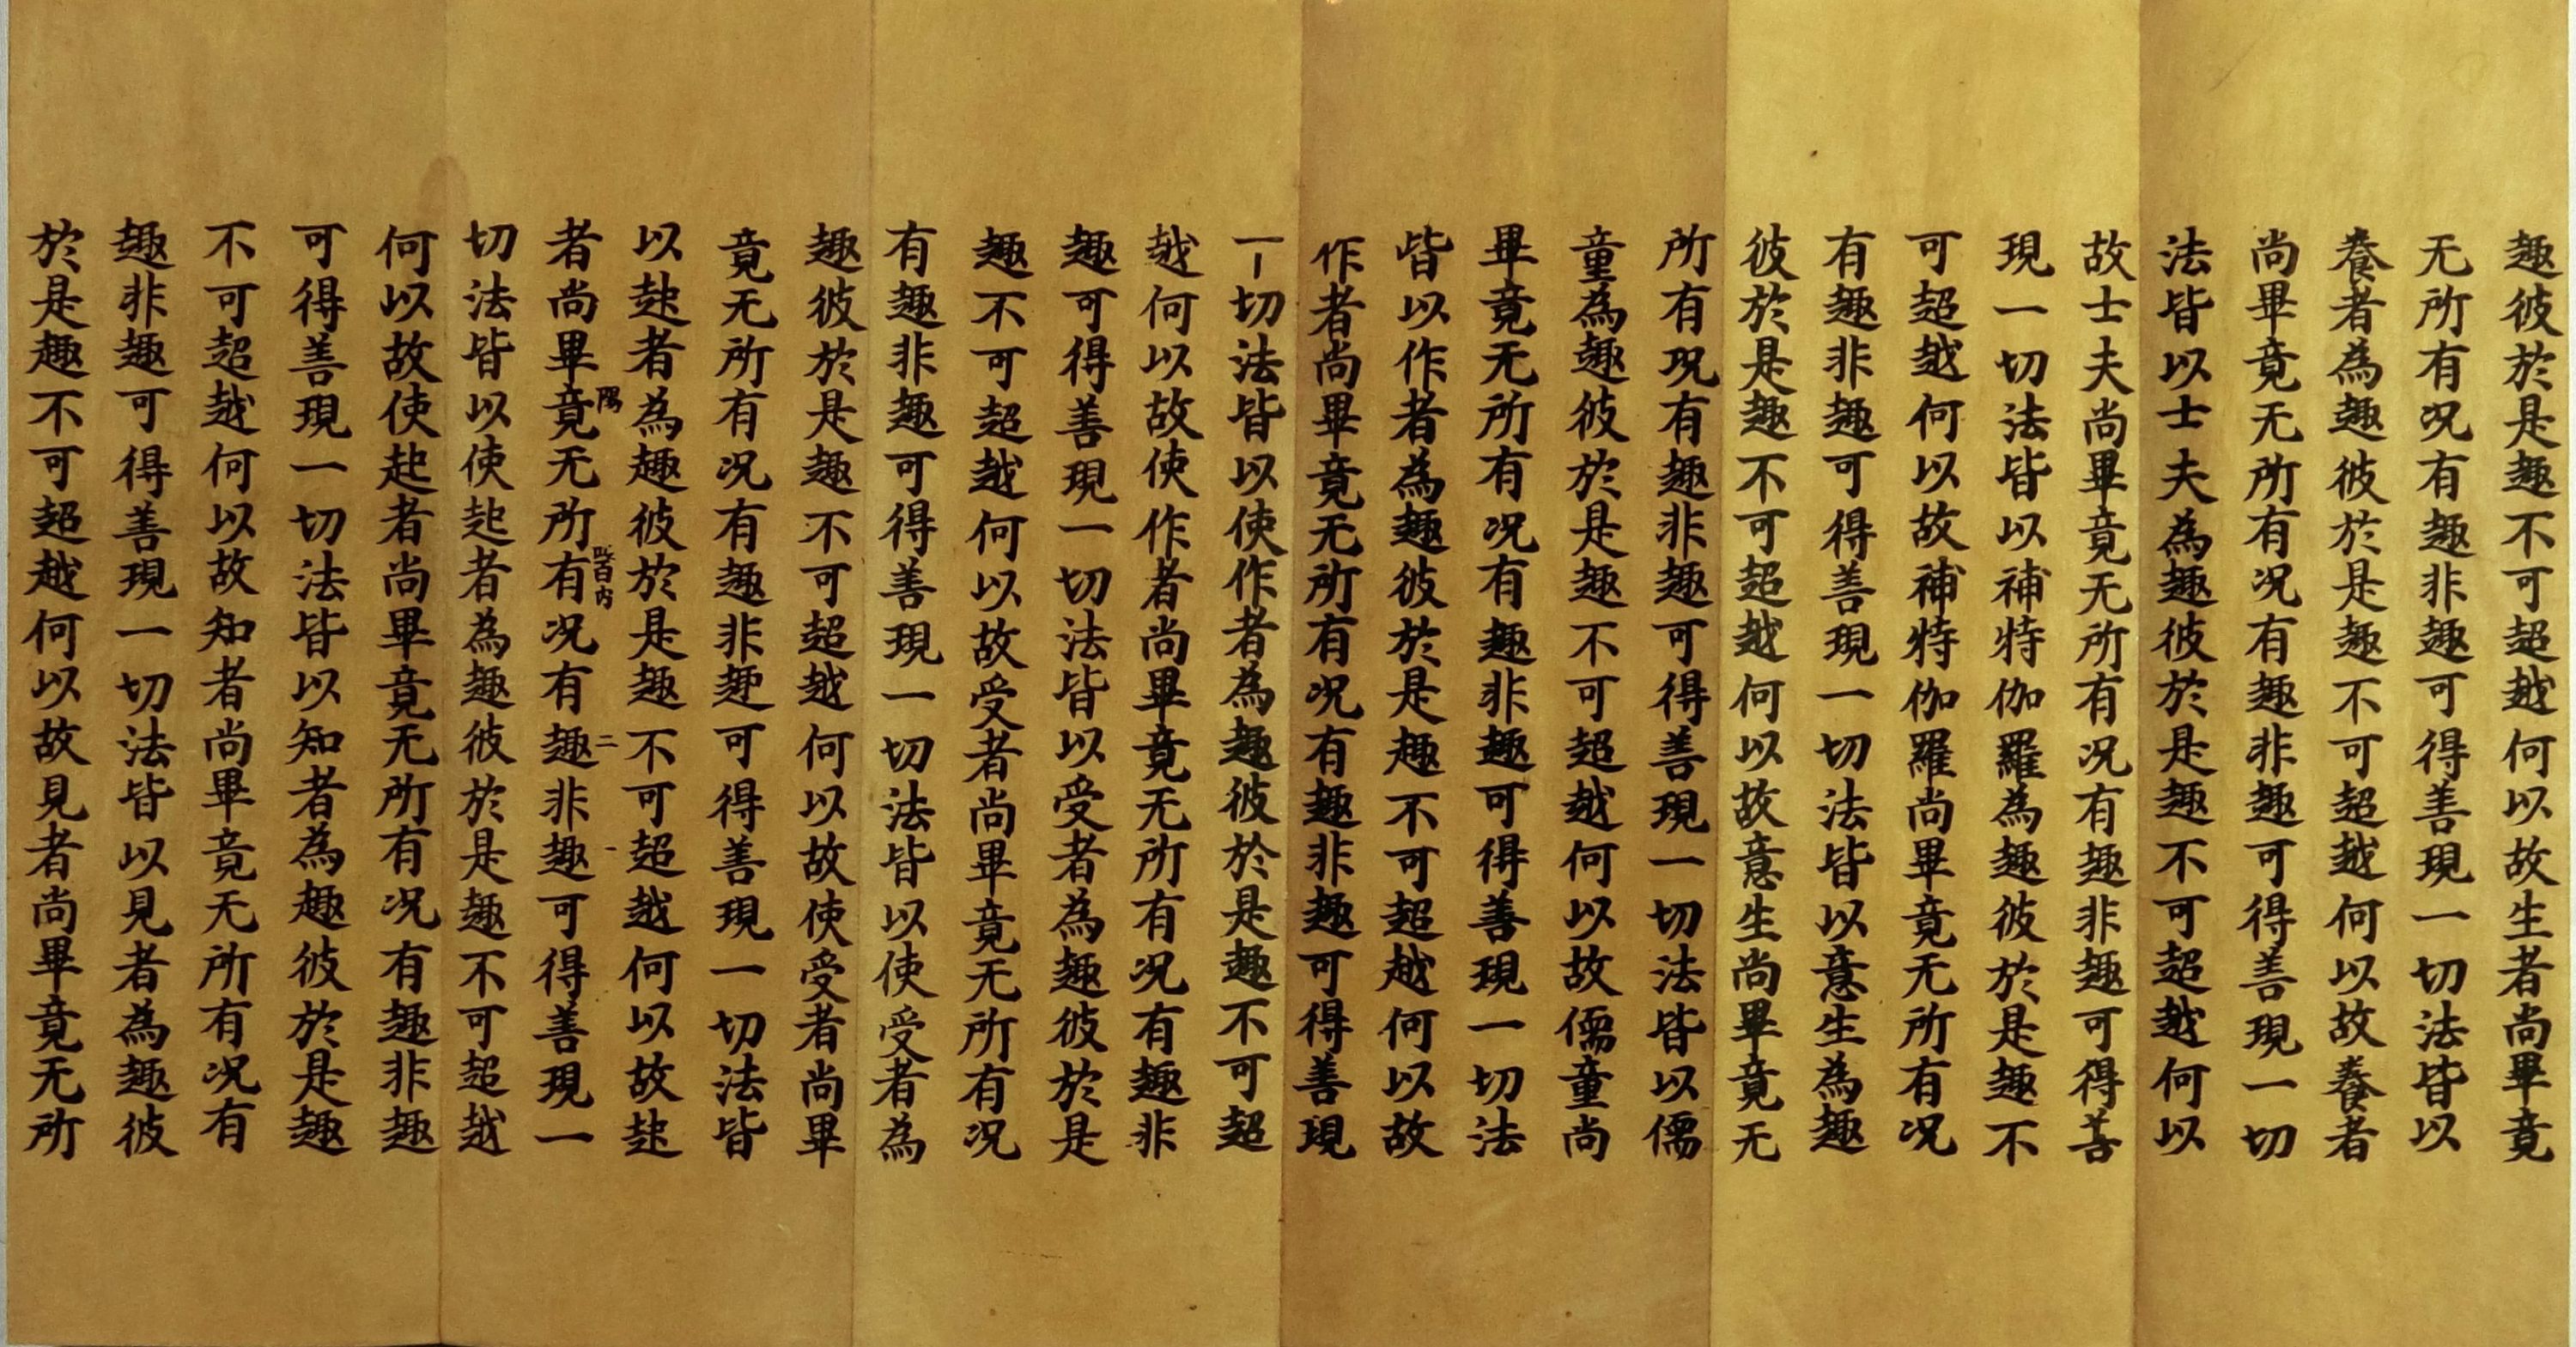 趣彼於是趣不可超越何以故生者尚畢竟
无所有况有趣非趣可得善現一切法皆以
養者為趣彼於是趣不可超越何以故養者
尚畢竟无所有况有趣非趣可得善現一切
法皆以士夫為趣彼於是趣不可超越何以
故士夫尚畢竟无所有况有趣非趣可得善
現一切法皆以補特伽羅為趣彼於是趣不
可超越何以故補特伽羅尚畢竟无所有况
有趣非趣可得善現一切法皆以意生為趣
彼於是趣不可超越何以故意生尚畢竟无
所有况有趣非趣可得善現一切法皆以儒
童為趣彼於是趣不可超越何以故儒童尚
畢竟无所有况有趣非趣可得善現一切法
皆以作者為趣彼於是趣不可超越何以故
作者尚畢竟无所有况有趣非趣可得善現
一切法皆以使作者為趣彼於是趣不可超
越何以故使作者尚畢竟无所有况有趣非
趣可得善現一切法皆以受者為趣彼於是
趣不可超越何以故受者尚畢竟无所有况
有趣非趣可得善現一切法皆以使受者為
趣彼於是趣不可超越何以故使受者尚畢
竟无所有况有趣非趣可得善現一切法皆
以起者為趣彼於是趣不可超越何以故起
百内 二
者尚畢竟无所有况有趣非趣可得善現一
切法皆以使起者為趣彼於是趣不可超越
何以故使起者尚畢竟无所有况有趣非趣
可得善現一切法皆以知者為趣彼於是趣
不可超越何以故知者尚畢竟无所有况有
趣非趣可得善現一切法皆以見者為趣彼
於是趣不可超越何以故見者尚畢竟无所